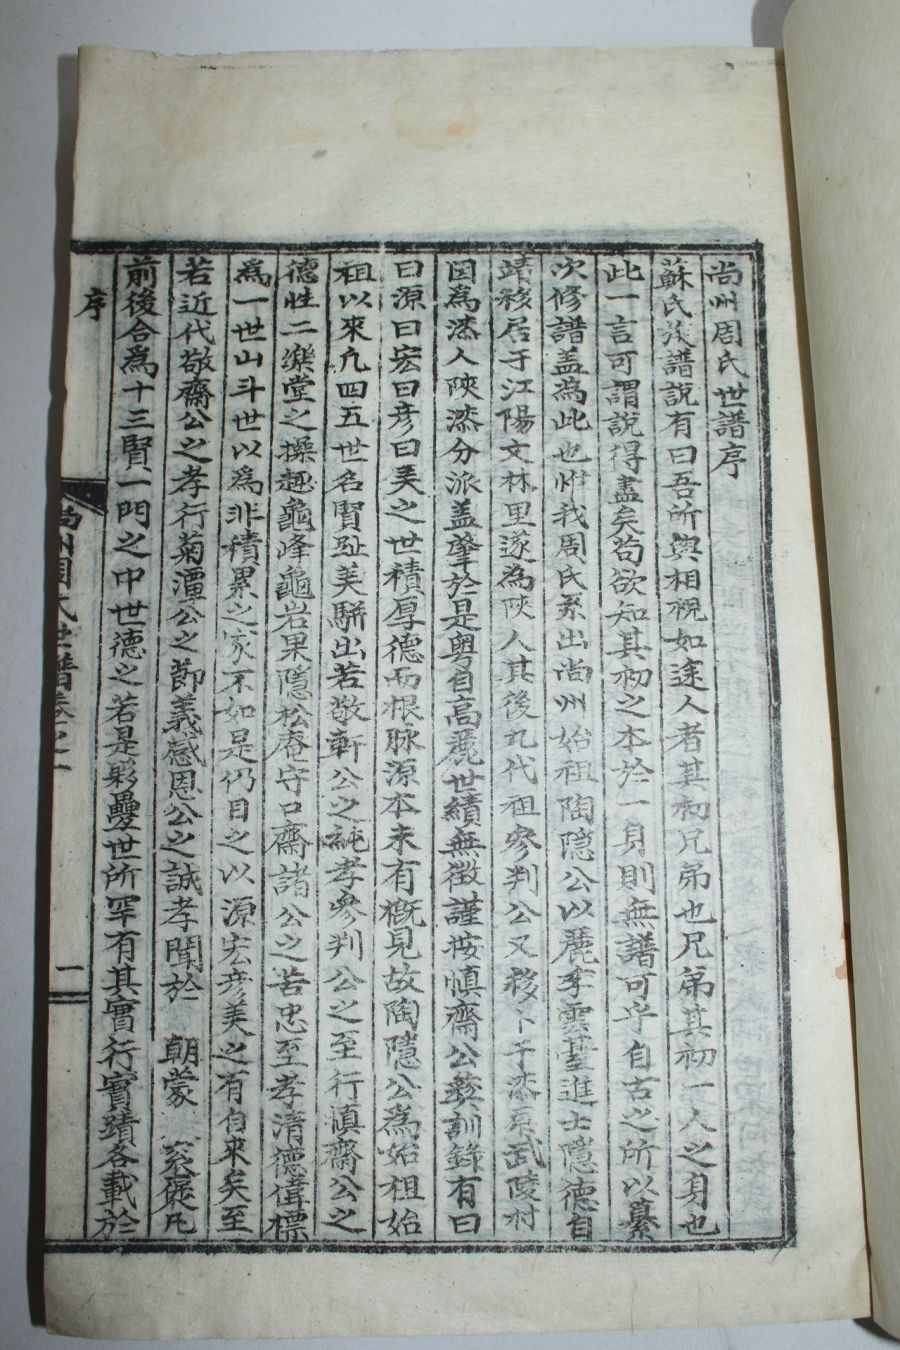 尚州周氏世譜序
蘇氏族譜說有曰吾所與相視如途人者其初兄弟也兄弟其初一人之身也
此一言可謂說得盡矣苟欲知其初之本於一身則無譜可乎自古之所以纂
次修譜盖為此也惟我周氏系出尚州始祖陶隐公以麗季雲臺進士隱德自
靖移居于江陽文林里遂為陜人其後九代祖參判公又移卜于漆原武陵村
因為漆人陜漆分派盖肇於是粤自高麗世績無徵謹按愼齋公彛訓錄有曰
曰源曰宏曰彦曰美之世積厚德而根脉源本未有概見故陶隱公為始祖始
祖以來凢四五世名賢趾美騈出若敬軒公之純孝參判公之至行愼齋公之
德性二樂堂之操趣龜峰龜岩果隱松庵守口齋諸公之苦忠至孝清德偉標
為一世山斗世以為非積累之家不如是仍目之以源宏彦美之有自來矣至
若近代敬齋公之孝行菊潭公之節義感恩公之誠孝聞於 朝蒙 褒凡
前後合為十三賢一門之中世德之若是夥疊世所罕有其實行實蹟各載於
序
尚州周氏世譜卷之一
一